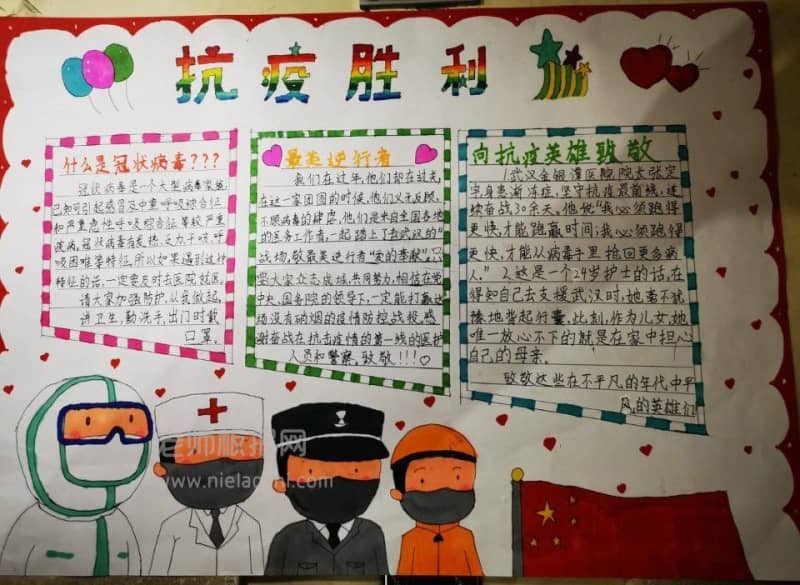 抗疫胜利
什么是冠状病毒???
冠状病毒是一个大型病毒家族,
已知可引起感冒及中东呼吸综合征
和严重急性呼吸综合征等较严重
疾病,冠状病毒有发热、乏力、干咳、呼
吸困难等特征,所以如果遇到这种
特征的话,一定要及时去医院就医。
请大家加强防护,从我做起,
讲卫生,勤洗手,出门时戴
口罩。
最美逆行者
我们在过年,他们却在过关,
在这一家团圆的时候,他们义无反顾,
不顾病毒的肆虐,他们是来自全国各地
的医务工作者,一起踏上了去武汉的"
战场,敬最美逆行者"爱的奉献",
大家众志成城,共同努力,相信在党
中央、国务院的领导下,一定能打赢这
场没有硝烟的疫情防控战役,感
谢奋战在抗击疫情的第一线的医护
人员和警察,致敬!!!
向抗疫英雄致敬
1.武汉金银潭医院院长张定
宇身患渐冻症,坚守抗疫最前线,连
续奋战30余天。他说"我必须跑得
更快,才能跑赢时间;我必须跑得
更快,才能从病毒手里抢回更多病
人。"2.这是一个24岁护士的话,在
得知自己去支援武汉时,她毫不犹
豫地背起行囊,此刻,作为儿女,她
唯一放心不下的就是在家中担心
自己的母亲。
致敬这些在不平凡的年代中平
凡的英雄们
老师板报网